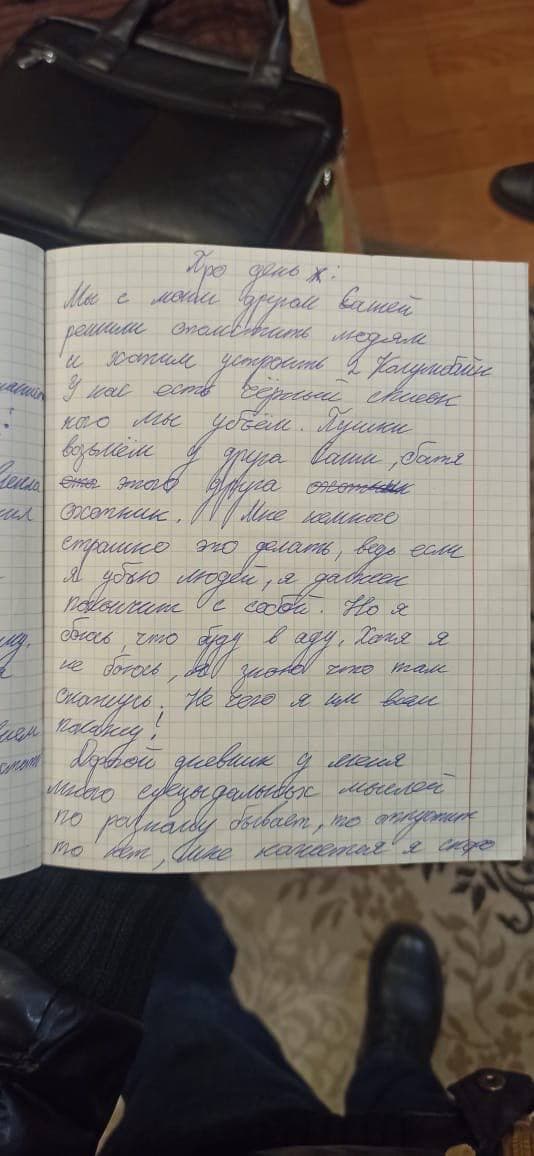 Про день X:
Мы с моим другом Сашей
решили отомстить людям
и хотим устроить 2 Колумбайн
У нас есть чёрный список
кого мы убьём. Пушки
возьмём у друга Саши, батя
этого друга
охотник. Мне немного
страшно это делать, ведь если
я убью людей, я должен
покончит с собой. Но я
боюсь, что буду в аду. Хотя я
не боюсь, знаю что там
окажусь. Не чего я им всем
покажу!
Дорогой дневник у меня
много суецыдальных мыслей
по разному бывает, то отпустит
то нет, мне кажется я скоро